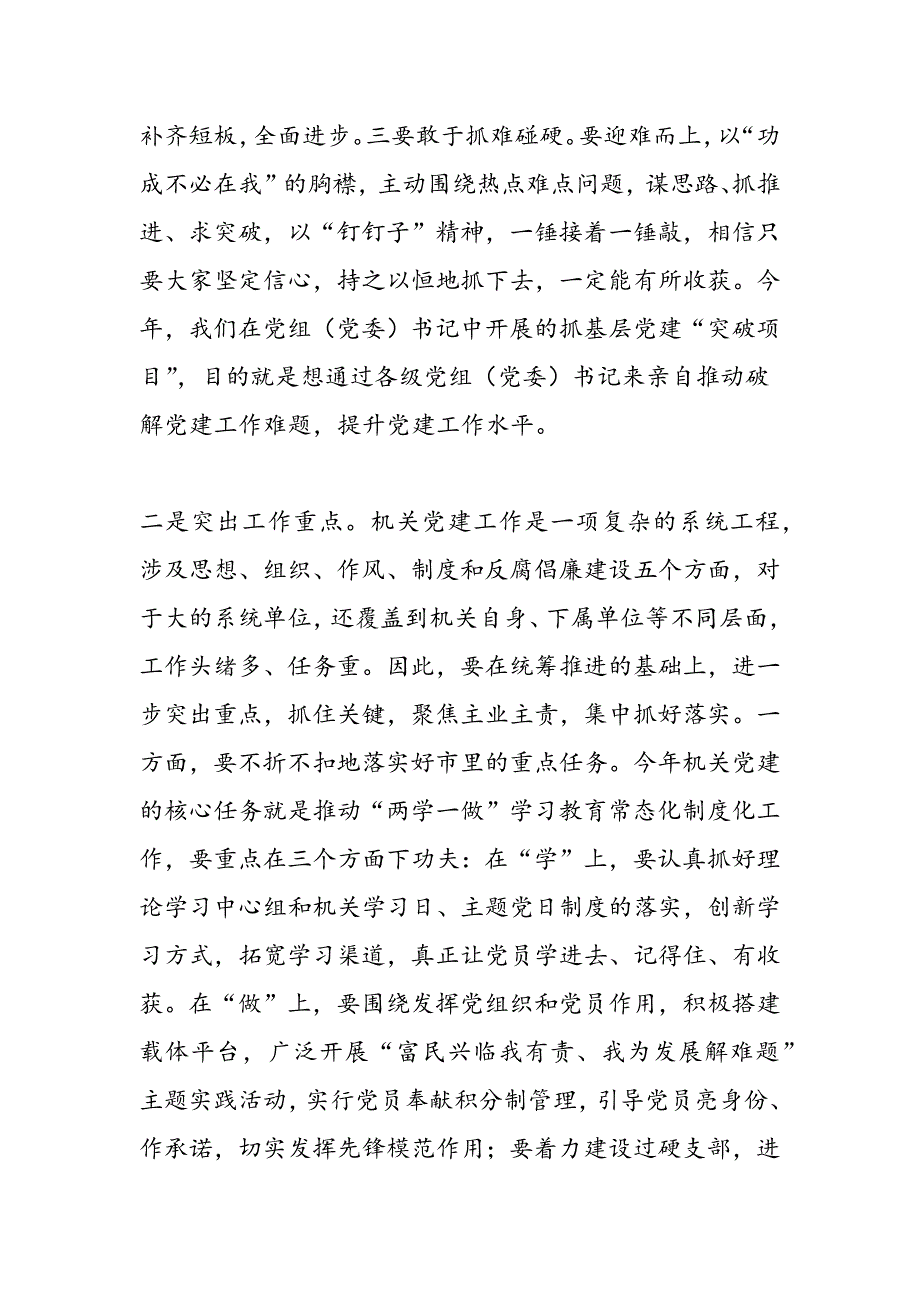 补齐短板，全面进步。三要敢于抓难碰硬。要迎难而上，以“功
成不必在我”的胸襟，主动围绕热点难点问题，谋思路、抓推
进、求突破，以“钉钉子”精神，一锤接着一锤敲，相信只
要大家坚定信心，持之以恒地抓下去，一定能有所收获。今
年，我们在党组（党委）书记中开展的抓基层党建“突破项
目”，目的就是想通过各级党组（党委）书记来亲自推动破
解党建工作难题，提升党建工作水平。
二是突出工作重点。机关党建工作是一项复杂的系统工程，
涉及思想、组织、作风、制度和反腐倡廉建设五个方面，对
于大的系统单位，还覆盖到机关自身、下属单位等不同层面，
工作头绪多、任务重。因此，要在统筹推进的基础上，进一
步突出重点，抓住关键，聚焦主业主责，集中抓好落实。一
方面，要不折不扣地落实好市里的重点任务。今年机关党建
的核心任务就是推动“两学一做”学习教育常态化制度化工
作，要重点在三个方面下功夫：在“学”上，要认真抓好理
论学习中心组和机关学习日、主题党日制度的落实，创新学
习方式，拓宽学习渠道，真正让党员学进去、记得住、有收
获。在“做”上，要围绕发挥党组织和党员作用，积极搭建
载体平台，广泛开展“富民兴临我有责、我为发展解难题”
主题实践活动，实行党员奉献积分制管理，引导党员亮身份、
作承诺，切实发挥先锋模范作用；要着力建设过硬支部，进